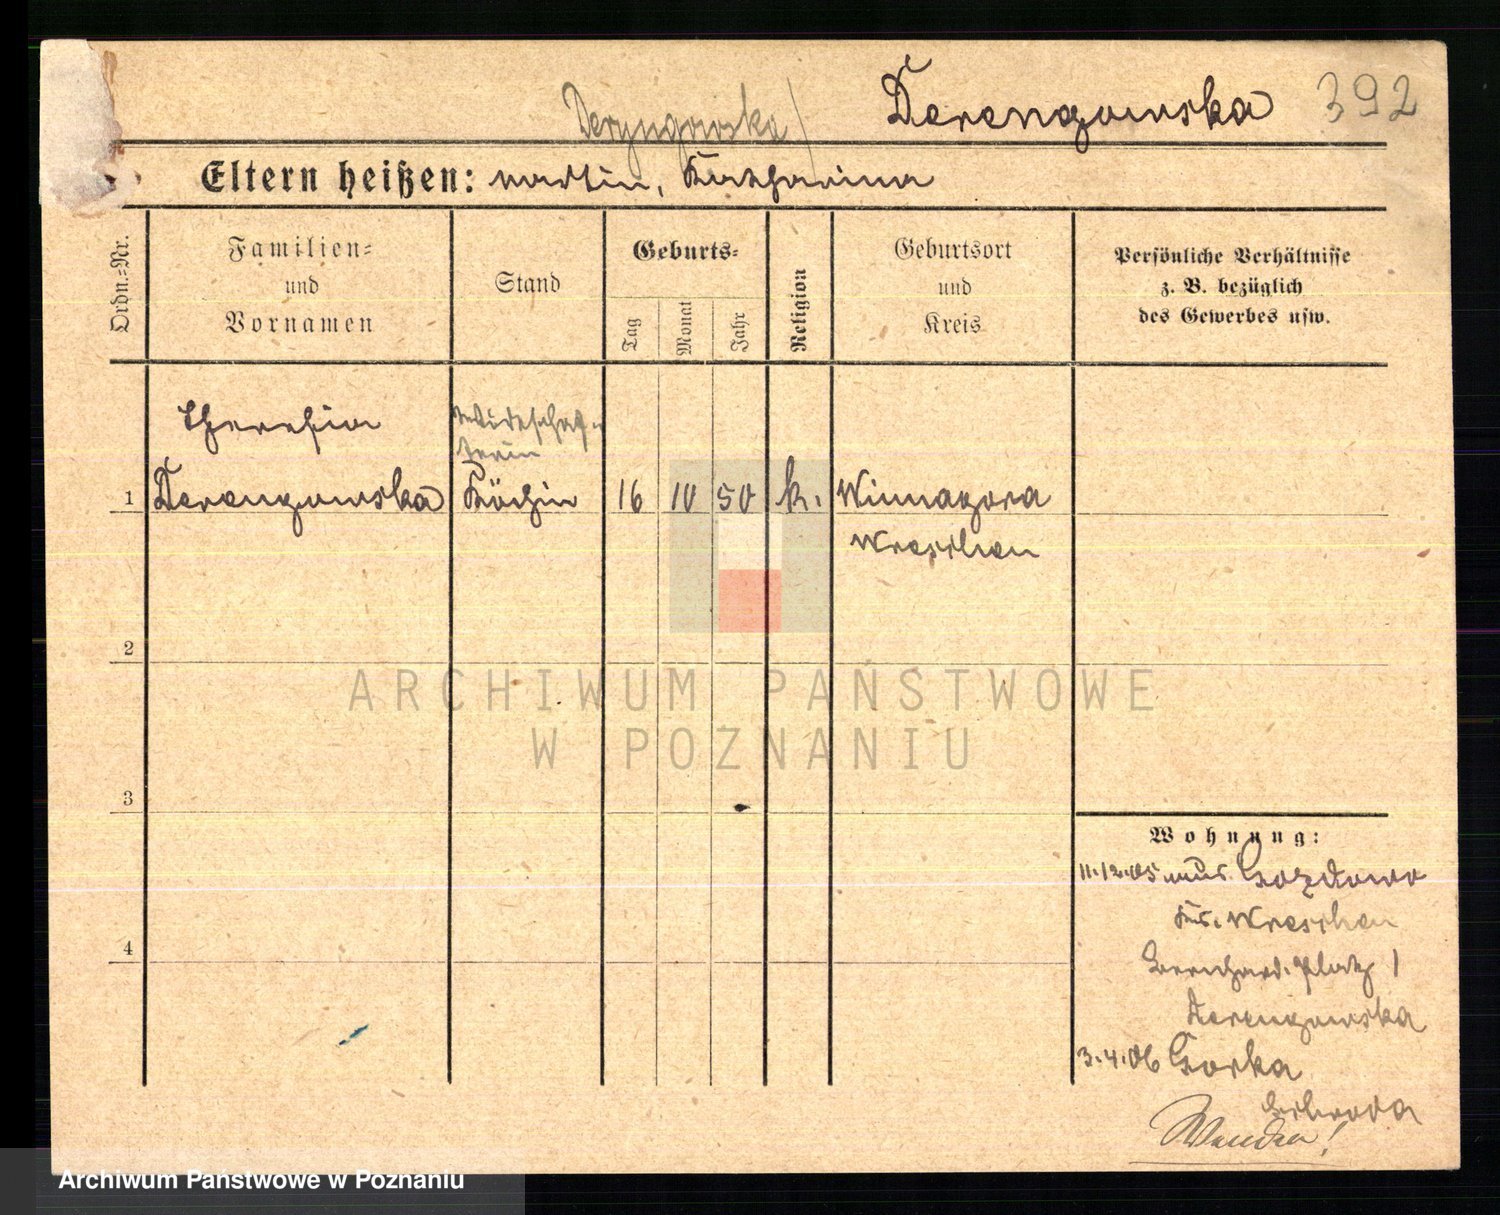 Deryngowska / Derengowska 392
Eltern heißen: Martin, Katharina
Ordn.=Nr.
Familien=
und
Vornamen
Stand
Geburts=
Tag
Monat
Jahr
Religion
Geburtsort
und
Kreis
Persönliche Verhältnisse
z. B. bezüglich
des Gewerbes usw.
Theresia
Wirtschaf-
terin
1 Derengowska Köchin 16 10 50 k. Winnagora
Wreschen
2
3
4
Wohnung:
11.12.05 aus Gozdowo
Krs. Wreschen
Bernhard. Platz 1
Derengowska
3.4.06 Gorka
Schroda
Wenden!
ARCHIWUM PAŃSTWOWE
W POZNANIU
Archiwum Państwowe w Poznaniu